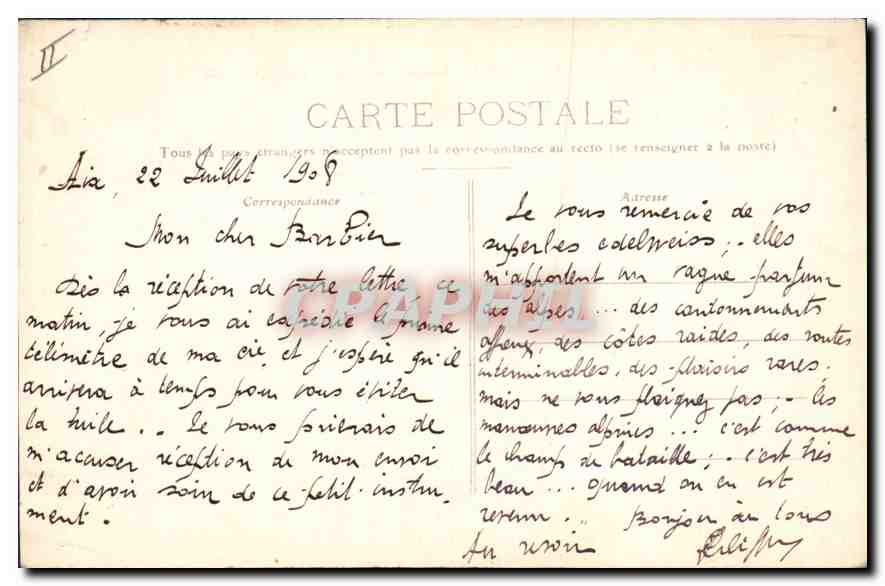 II
CARTE POSTALE
Tous les pays étrangers n'acceptent pas la correspondance au recto (se renseigner à la poste)
Aix, 22 Juillet 1908
Correspondance
Mon cher Barbier
Dès la réception de votre lettre ce
matin, je vous ai expédié le même
télémètre de ma cie, et j'espère qu'il
arrivera à temps pour vous éviter
la tuile.. Je vous prierais de
m'accuser réception de mon envoi
et d'avoir soin de ce petit instru-
ment.
Adresse
Je vous remercie de vos
superbes edelweiss; - elles
m'apportent un vague parfum
des alpes... des cantonnements
affreux, des côtes raides, des routes
interminables, des plaisirs rares.
mais ne vous plaignez pas; - les
manœuvres alpines... c'est comme
le champ de bataille; - c'est très
beau... quand on en est
revenu.. Bonjour à tous
Au revoir
CPAPHIL